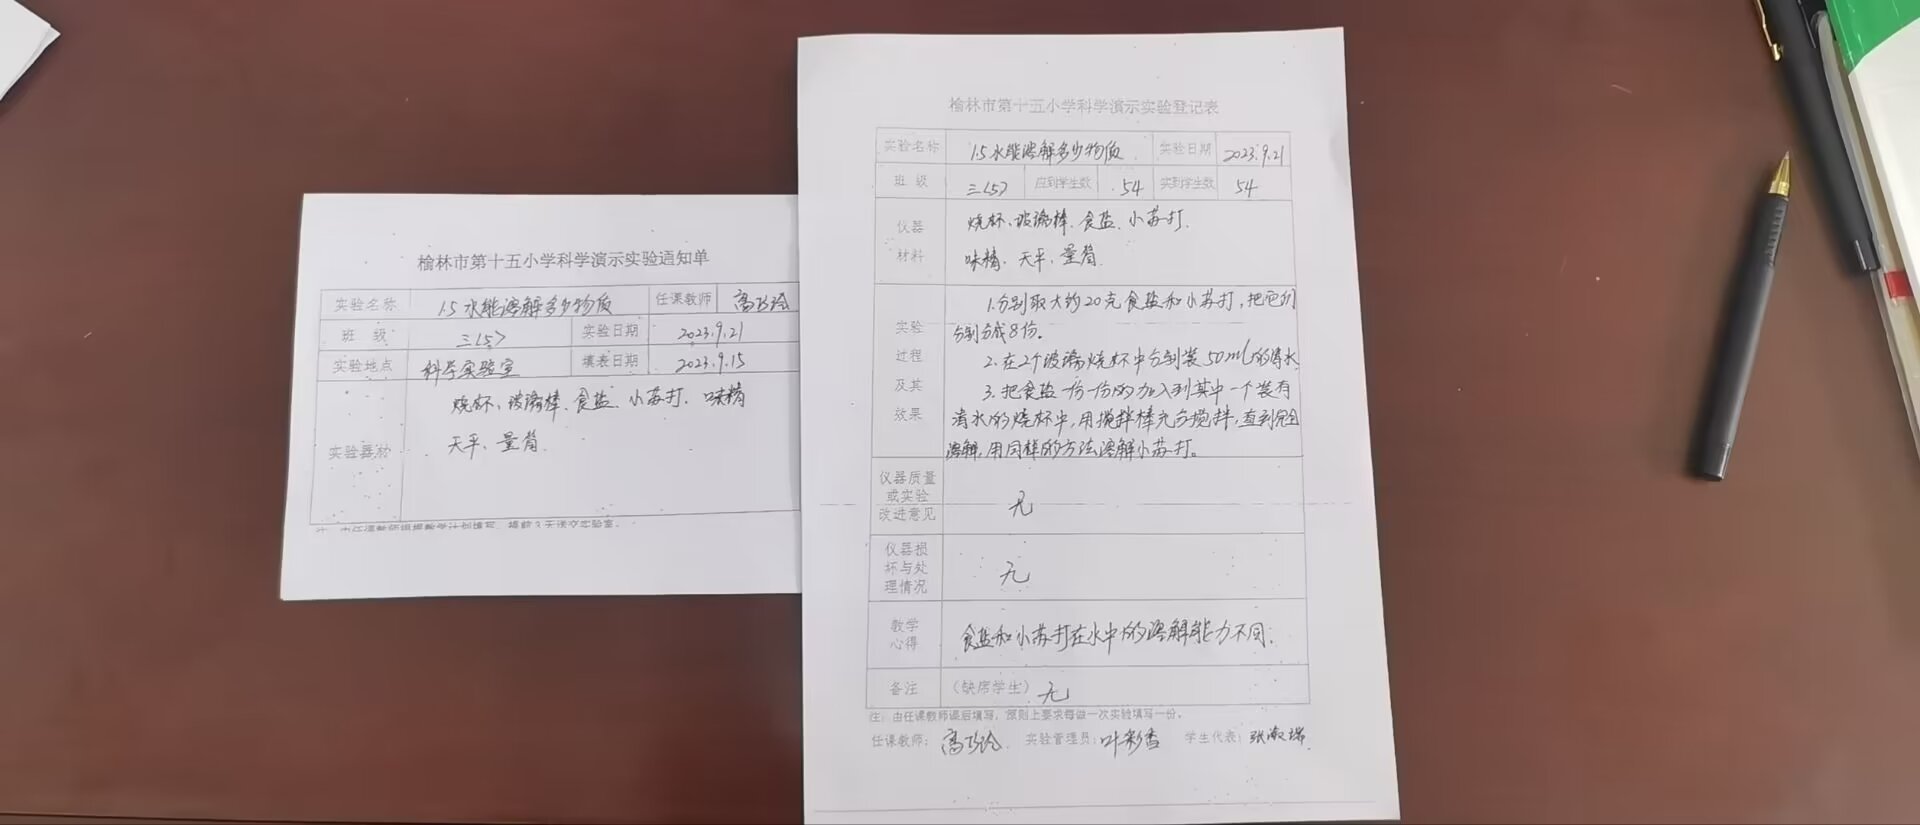 榆林市第十五小学科学演示实验通知单
实验名称 1.5水能溶解多少物质 任课教师
班 级 三<5> 实验日期 2023.9.21
实验地点 科学实验室 填表日期 2023.9.15
实验器材
烧杯、玻璃棒、食盐、小苏打、味精
天平、量筒.
注：由任课教师根据教学计划填写，提前3天送交实验室。
榆林市第十五小学科学演示实验登记表
实验名称 1.5水能溶解多少物质 实验日期 2023.9.21
班 级 三<5> 应到学生数 54 实到学生数 54
仪器
材料
烧杯、玻璃棒、食盐、小苏打、
味精、天平、量筒.
实验
过程
及其
效果
1.分别取大约20克食盐和小苏打，把它们
分别分成8份。
2.在2个玻璃烧杯中分别装50ml的清水
3.把食盐一份一份的加入到其中一个装有
清水的烧杯中，用搅拌棒充分搅拌，直到完全
溶解，用同样的方法溶解小苏打。
仪器质量
或实验
改进意见
无
仪器损
坏与处
理情况
无
教学
心得
食盐和小苏打在水中的溶解能力不同.
备注 （缺席学生） 无
注：由任课教师课后填写，原则上要求每做一次实验填写一份。
任课教师： 实验管理员：叶彩香 学生代表：